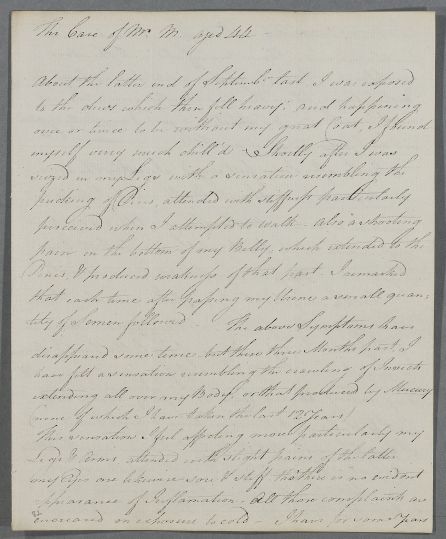 The Case of Mr. M. aged 44 -
About the latter end of Septembr. last I was exposed
to the dews which then fell heavy; and happening
once or twice to be without my great Coat, I found
myself very much chill'd - Shortly after I was
seized in my Legs with a sensation resembling the
pricking of Pins, attended with stiffness particularly
perceived when I attempted to walk - also a shooting
pain in the bottom of my Belly, which extended to the
Penis & produced weakness of that part - I remarked
that each time after passing my Urine a small quan-
tity of Semen followed. The above Symptoms have
disappeared some time, but these three Months past I
have felt a sensation resembling the crawling of Insects
extending all over my Body, or that produced by Mercury
(none of which I have taken the last 12 Years)
This sensation I feel affecting more particularly my
Legs & Arms attended with slight pains of the latter
my Eyes are likewise sore & stiff tho' there is no evident
appearance of Inflamation. All these complaints are
encreased on exposure to cold - I have for some Years